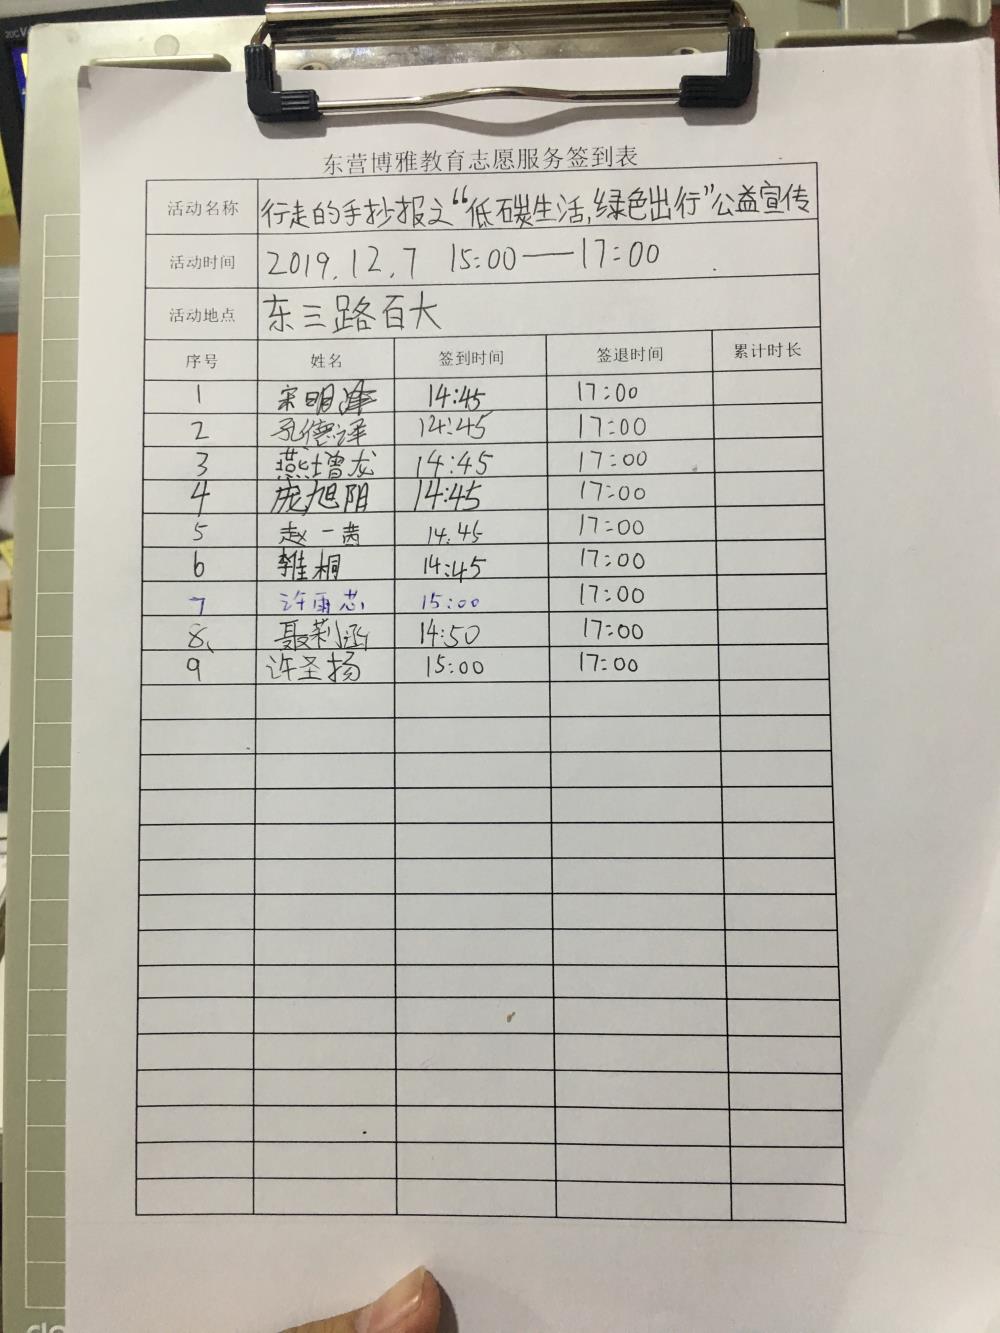 东营博雅教育志愿服务签到表
活动名称 行走的手抄报之“低碳生活,绿色出行”公益宣传
活动时间 2019.12.7 15:00——17:00
活动地点 东三路百大
序号 姓名 签到时间 签退时间 累计时长
1 宋明泽 14:45 17:00
2 孔德译 14:45 17:00
3 燕增龙 14:45 17:00
4 庞旭阳 14:45 17:00
5 赵一茜 14:45 17:00
6 桐 14:45 17:00
7 许雨芯 15:00 17:00
8、 聂莉涵 14:50 17:00
9 许圣扬 15:00 17:00